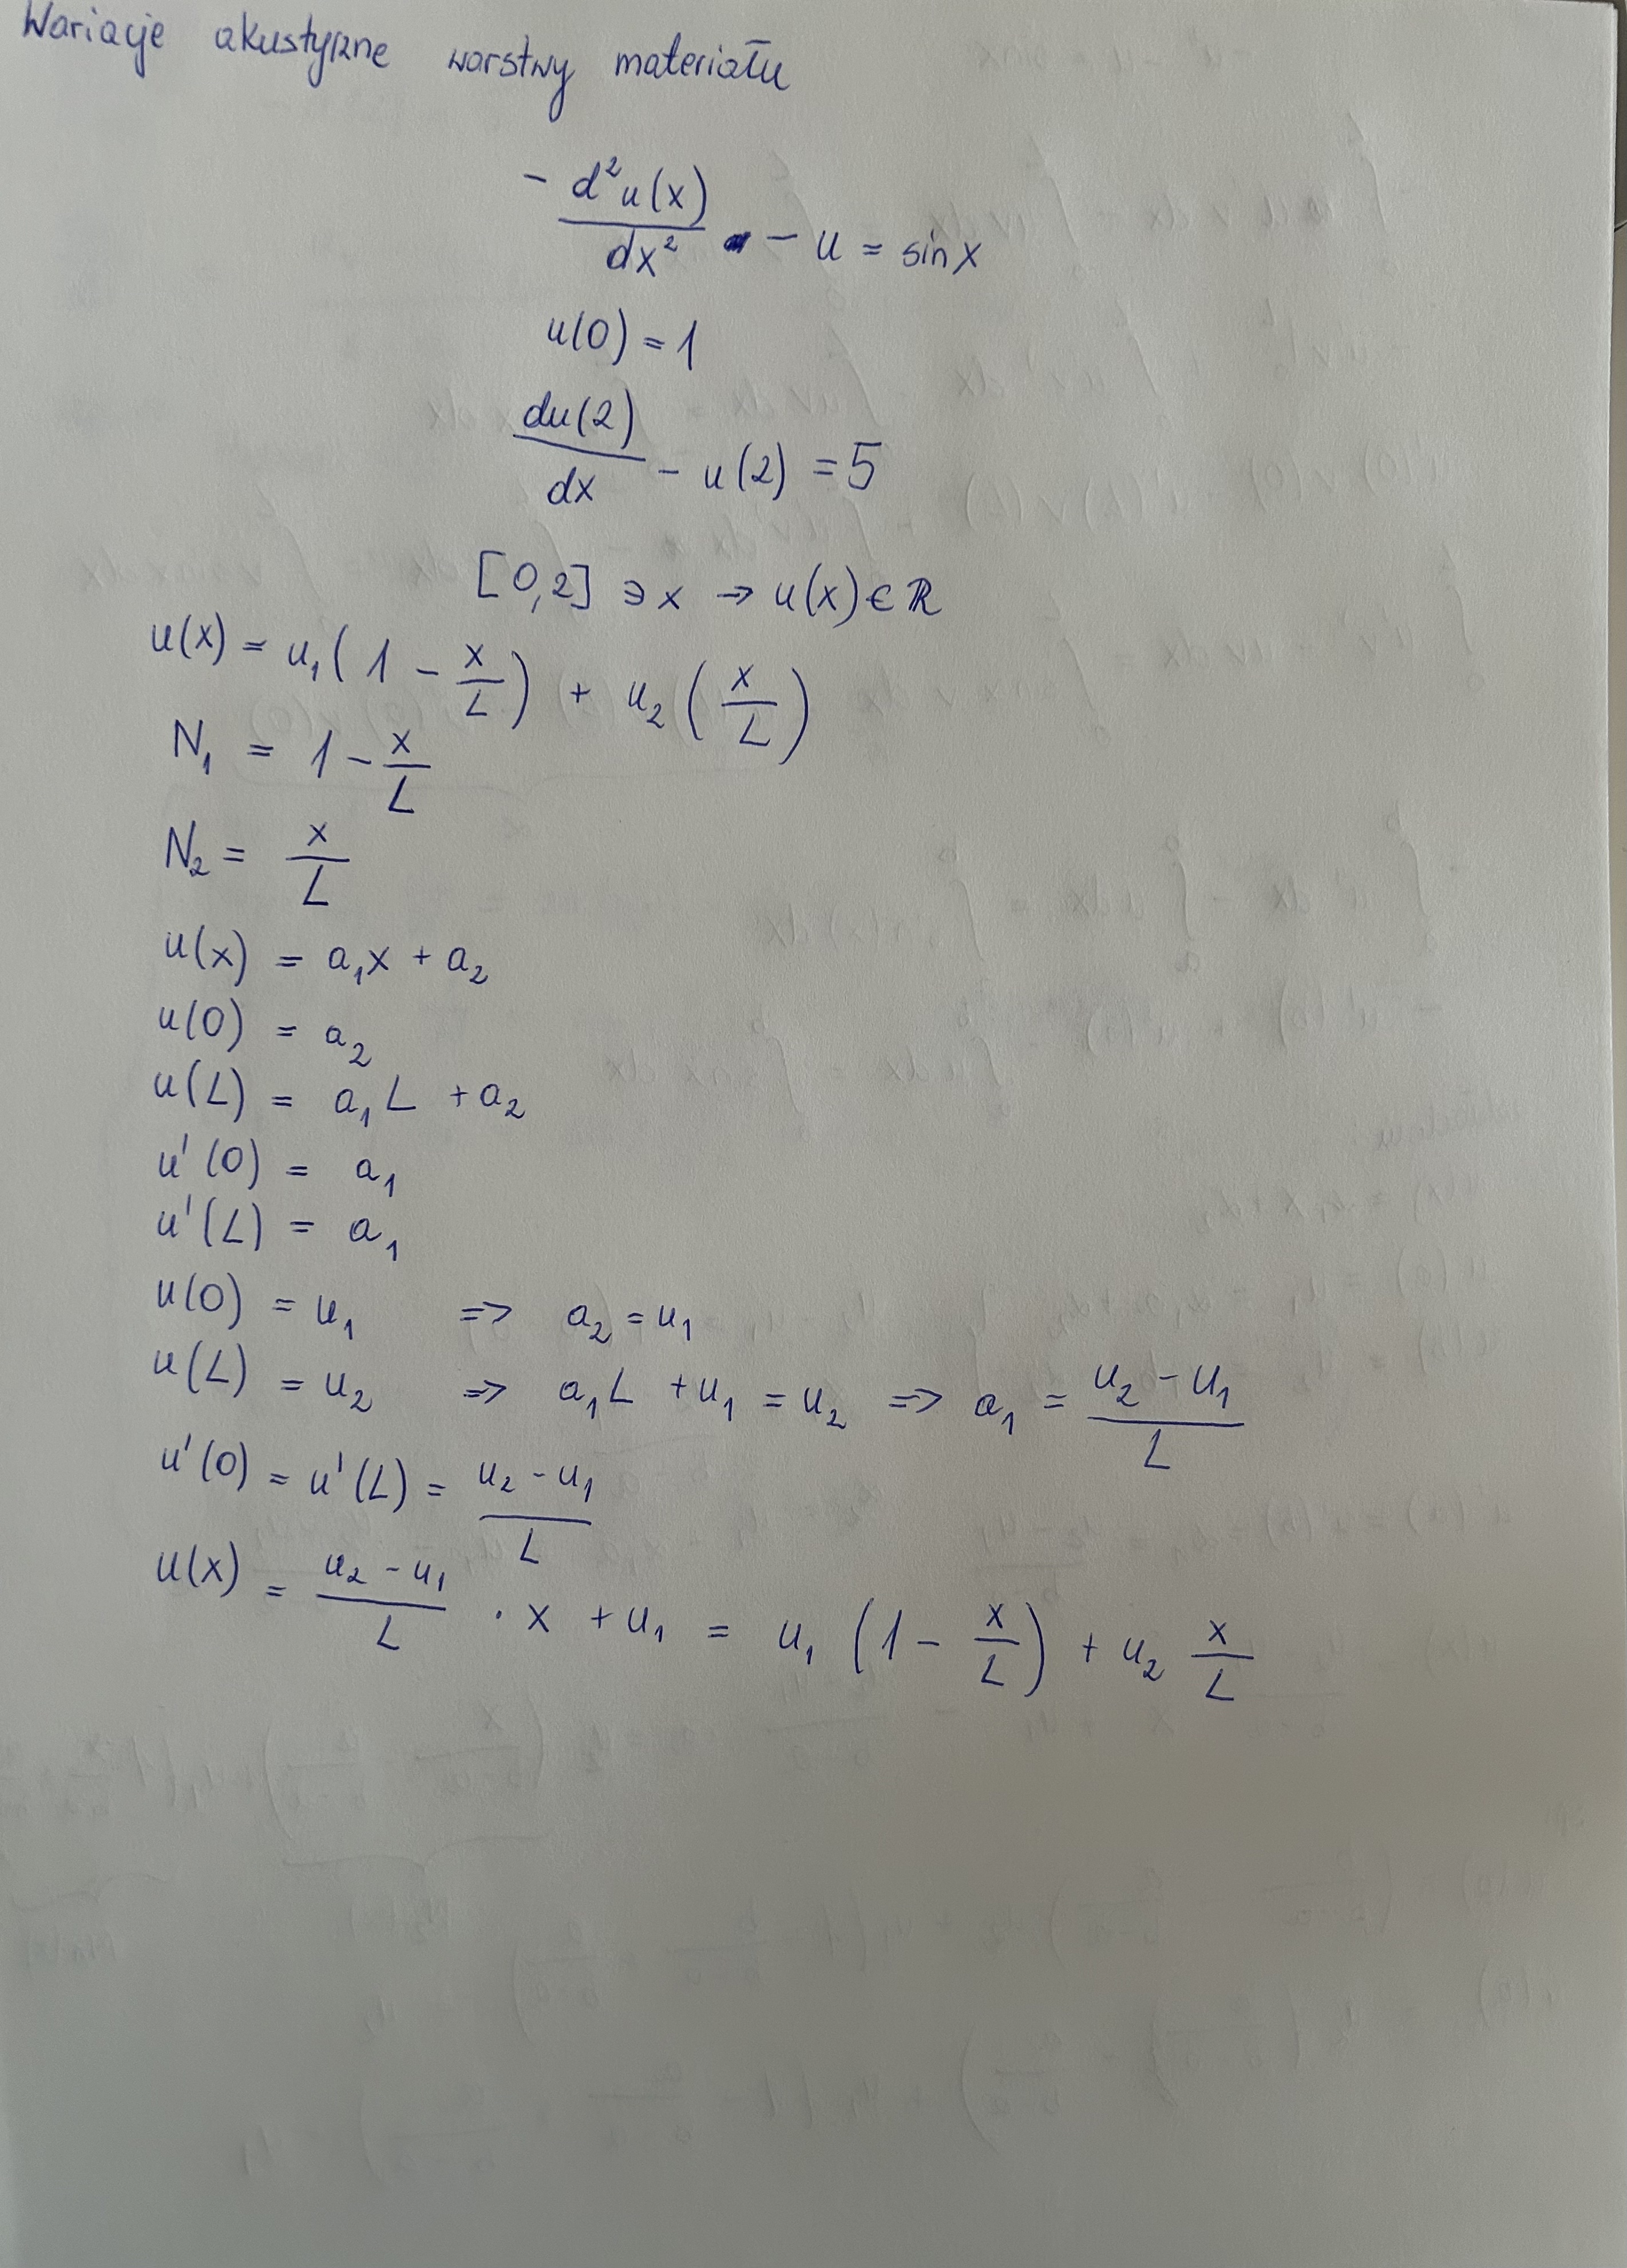 Wariacje akustyczne warstwy materiału
- d²u(x)/dx² - u = sin x
u(0) = 1
du(2)/dx - u(2) = 5
[0,2] ∋ x → u(x) ∈ ℝ
u(x) = u₁(1 - x/L) + u₂(x/L)
N₁ = 1 - x/L
N₂ = x/L
u(x) = a₁x + a₂
u(0) = a₂
u(L) = a₁L + a₂
u'(0) = a₁
u'(L) = a₁
u(0) = u₁ => a₂ = u₁
u(L) = u₂ => a₁L + u₁ = u₂ => a₁ = (u₂ - u₁)/L
u'(0) = u'(L) = (u₂ - u₁)/L
u(x) = (u₂ - u₁)/L · x + u₁ = u₁(1 - x/L) + u₂ x/L